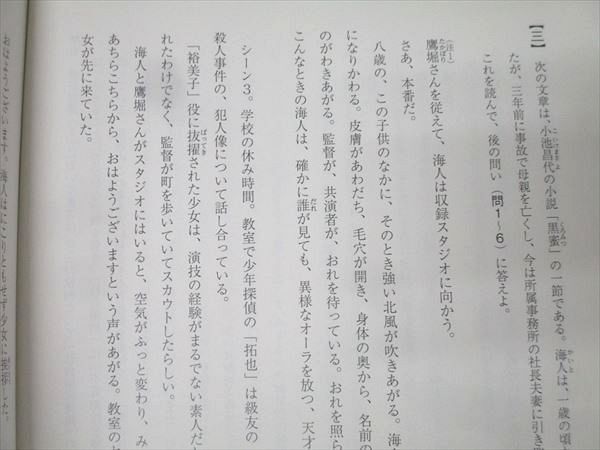 【三】 次の文章は、小池昌代の小説「黒蜜」の一節である。海人は、一歳の頃
たが、三年前に事故で母親を亡くし、今は所属事務所の社長夫妻に引き
これを読んで、後の問い(問1～6)に答えよ。
(注1)鷹堀さんを従えて、海人は収録スタジオに向かう。
さあ、本番だ。
八歳の、この子供のなかに、そのとき強い北風が吹きあがる。海
になりかわる。皮膚があわだち、毛穴が開き、身体の奥から、名前の
のがわきあがる。監督が、共演者が、おれを待っている。おれを照ら
こんなときの海人は、確かに誰が見ても、異様なオーラを放つ、天才
シーン3。学校の休み時間。教室で少年探偵の「拓也」は級友の
殺人事件の、犯人像について話し合っている。
「裕美子」役に抜擢された少女は、演技の経験がまるでない素人だ
れたわけでなく、監督が町を歩いていてスカウトしたらしい。
海人と鷹堀さんがスタジオにはいると、空気がふっと変わり、み
あちらこちらから、おはようございますという声があがる。教室の
女が先に来ていた。
おはようございます。海人はにこりともせず少女に挨拶した。